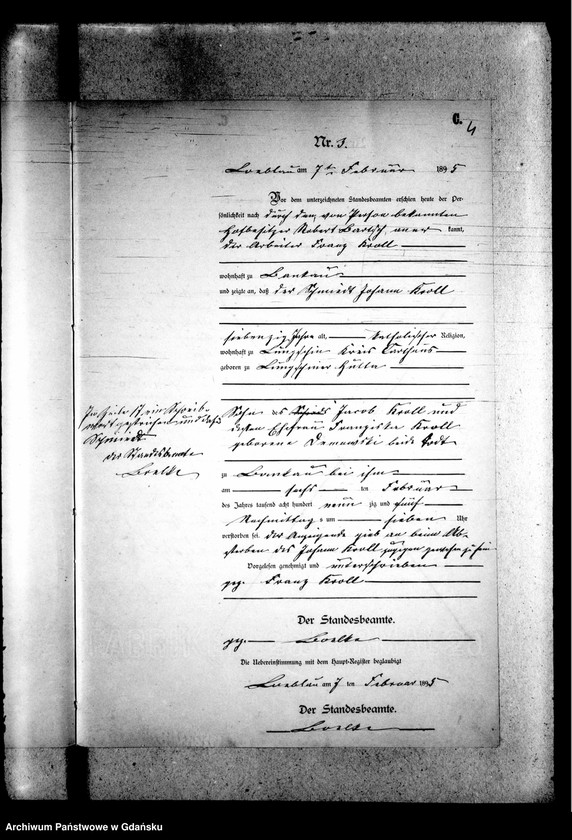 C.
4
Nr. 3.
Loeblau am 7ten Februar 1895
Vor dem unterzeichneten Standesbeamten erschien heute der Per-
sönlichkeit nach durch den von Person bekannten
Hofbesitzer Robert Bartsch kannt,
der Arbeiter Franz Kroll
wohnhaft zu Bankau
und zeigte an, daß der Schmiedt Johann Kroll
siebenzig Jahre alt, katholischer Religion,
wohnhaft zu Kreis Carthaus
geboren zu Hütte
Sohn des Jacob Kroll und
dessen Ehefrau Franziska Kroll
geborene beide todt
zu Bankau bei ihm
am sechs ten Februar
des Jahres tausend acht hundert neunzig und fünf
Nachmittag um sieben Uhr
verstorben sei. der Anzeigende gieb an beim Ab-
sterben des Johann Kroll zugegen gewesen zu sein
Vorgelesen, genehmigt und unterschrieben
gez. Franz Kroll
Der Standesbeamte.
gez. Boelke
Die Uebereinstimmung mit dem Haupt-Register beglaubigt
Loeblau am 7 ten Februar 1895
Der Standesbeamte.
Boelke
Im Zeile 17 ein Schreib-
wort gestrichen
Schmiedt
der Standesbeamte
Boelke
Archiwum Państwowe w Gdańsku